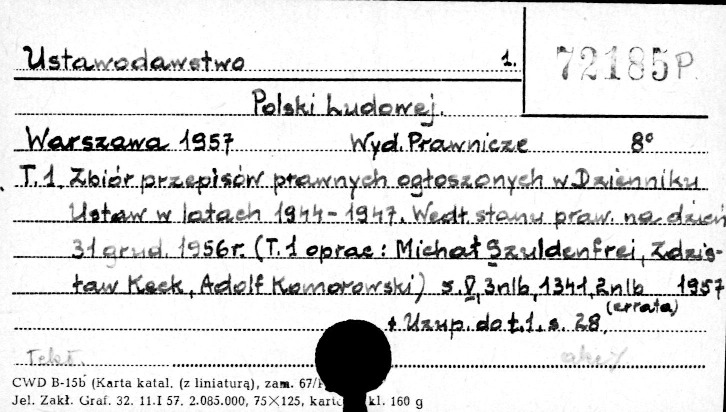 Ustawodawstwo 1. 72185 P.
Polski Ludowej.
Warszawa 1957 Wyd. Prawnicze 8°
T.1. Zbiór przepisów prawnych ogłoszonych w Dzienniku
Ustaw w latach 1944-1947. Wedł. stanu praw. na dzień
31 grud. 1956r. (T.1 oprac: Michał Szuldenfrei, Zdzis-
ław Keck, Adolf Komorowski) s. V, 3nlb, 1341, 2nlb 1957
(errata)
+ Uzup. do t.1. s. 28.
Tekst.
CWD B-15b (Karta katal. (z liniaturą), zam. 67/
Jel. Zakł. Graf. 32. 11.I 57. 2.085.000, 75×125, kart kl. 160 g